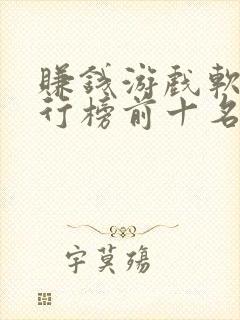 賺錢游戲軟
行榜前十名
字莫殤